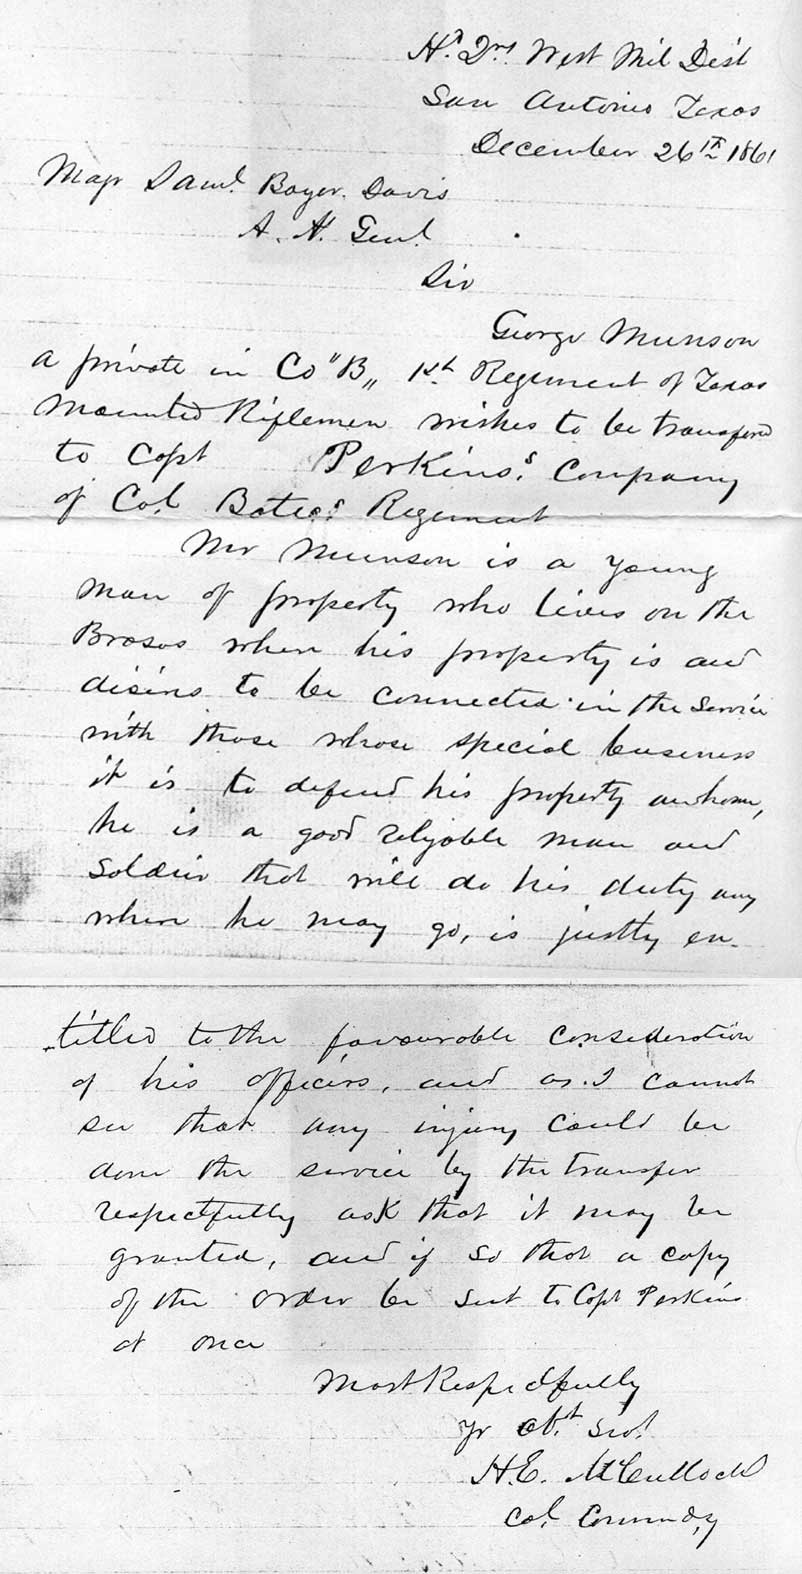 Hd Qrs West Mil Dist
San Antonio Texas
December 26th 1861
Majr Saml Boyer Davis
A. A. Genl
Sir
George Munson
a private in Co "B" 1st Regiment of Texas
Mounted Riflemen wishes to be transferd
to Capt Perkins's Company
of Col Bates's Regiment
Mr Munson is a young
man of property who lives on the
Brasos where his property is and
desires to be connected in the service
with those whose special business
it is to defend his property
he is a good relyable man and
Soldier that will do his duty any
where he may go, is justly en-
titled to the favourable consideration
of his officers, and as I cannot
see that any injury could be
done the service by the transfer
respectfully ask that it may be
granted, and if so that a copy
of the order be sent to Capt Perkins
at once
Most Respectfully
Yr obt Svt
H. E. McCulloch
Col Commdg